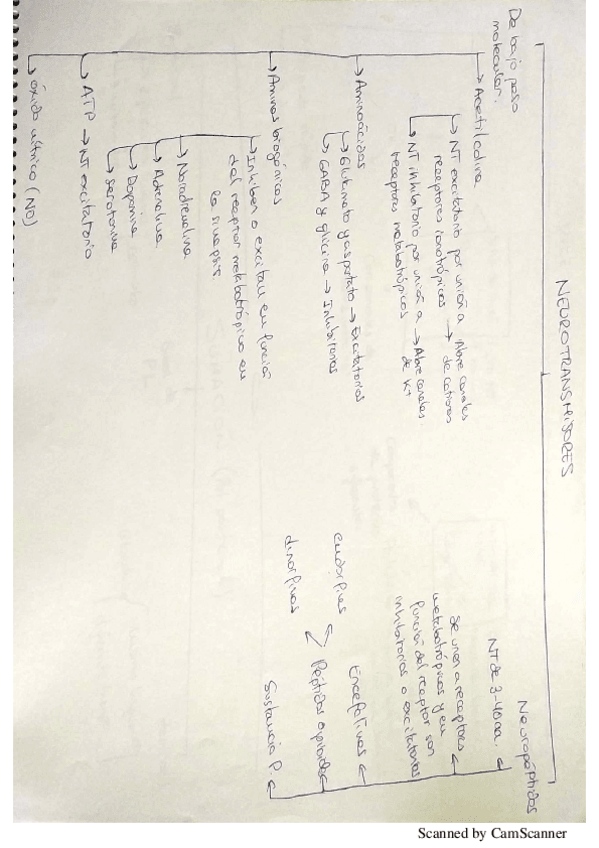 NEUROTRANSMISORES
De bajo peso
molecular.
Acetilcolina
NT excitatorio por unión a
receptores ionotrópicos
→ Abre canales
de cationes
NT inhibitorio por unión a
receptores metabotrópicos
→ Abre canales
de K+
Aminoácidos
Glutamato y aspartato → Excitatorios
GABA y glicina → Inhibitorios
Aminas biogénicas
Inhiben o excitan en función
del receptor metabotrópico en
la sinapsis.
Noradrenalina
Adrenalina
Dopamina
Serotonina
ATP → NT excitatorio
óxido nítrico (NO)
Neuropéptidos
NT de 3-40 aa.
Se unen a receptores
metabotrópicos y en
función del receptor son
inhibitorios o excitatorios
Encefalinas
Péptidos opioides
endorfinas
dinorfinas
Sustancia P.
Scanned by CamScanner